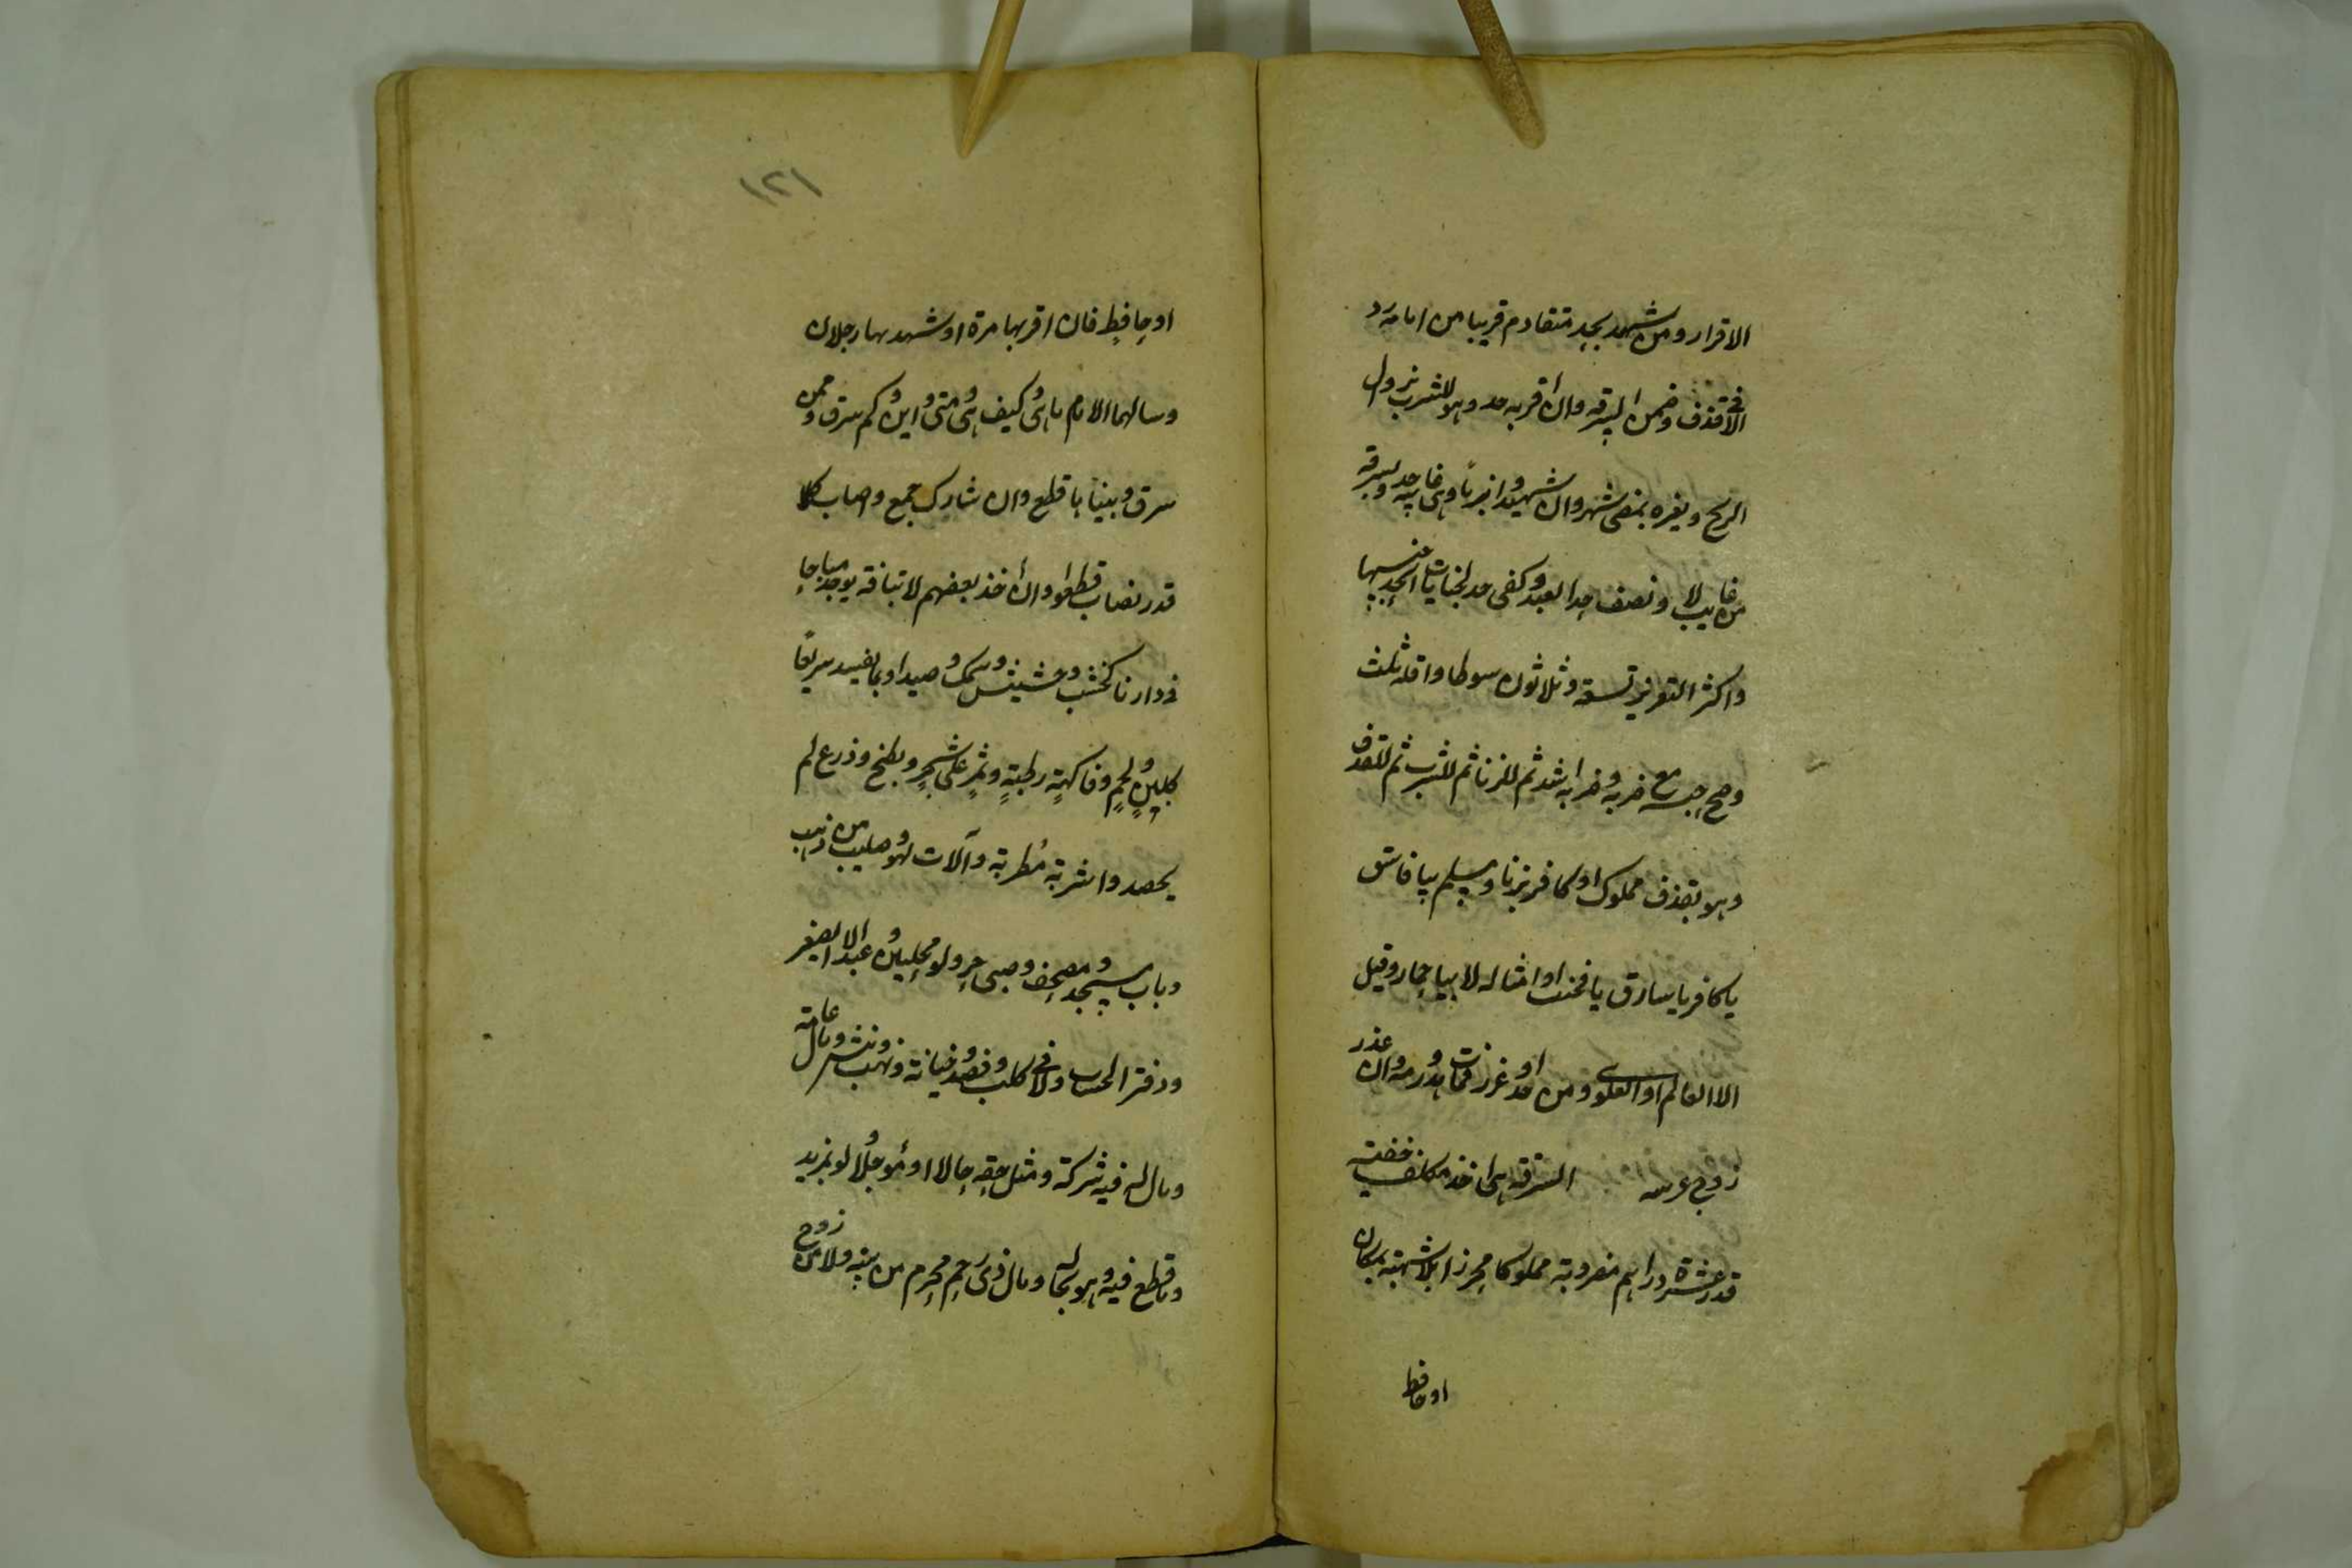 الاقرار ومن شهد بحد متقادم قريبا من امامه رد
الا في قذف وضمن السرقه وان اقر به حد وهو للشرب بزوال
الريح ولغيره بمضى شهر وان شهدوا بزنا وهى غايبه حد وبسرقه
من غايب لا ونصف حد العبد وكفى حد لجنايات اتحد جنسها
واكثر التعزير تسعة وثلاثون سوطا واقله ثلث
وصح حبسه مع ضربه وضربه اشد ثم للزنا ثم للشرب ثم للقذف
وهو بقذف مملوك او كافر بزنا ومسلم بيا فاسق
يا كافر يا سارق يا مخنث او امثاله لا بيا حمار وقيل
الا العالم او العلوى ومن حد او عزر فمات هدر دمه وان عزر
زوج عرسه السرقه هى اخذ مكلف خفية
قدر عشرة دراهم مضروبة مملوكا محرزا بلا شبهة بمكان
او حافظ
١٢١
او حافظ فان اقر بها مرة او شهد بها رجلان
وسالهما الامام ما هى وكيف هى ومتى واين وكم سرق وممن
سرق وبيناها قطع وان شارك جمع واصاب كلا
قدر نصاب قطعوا وان أخذ بعضهم لا بتافه يوجد مباحا
فى دارنا كخشب وحشيش وسمك وصيد او بما يفسد سريعا
كلبن ولحم وفاكهة رطبة وثمر على شجر وبطيخ وزرع لم
يحصد واشربة مطربة وآلات لهو وصليب من ذهب
وباب مسجد ومصحف وصبى حر ولو محليين وعبد الا الصغير
ودفتر الحساب ولا فى كلب وفهد وخيانة ونهب ونبش ومال عامة
ومال له فيه شركة ومثل حقه حالا او مؤجلا ولو بمزيد
وما قطع فيه وهو بحاله ومال ذى رحم محرم من بيته ولا من زوج